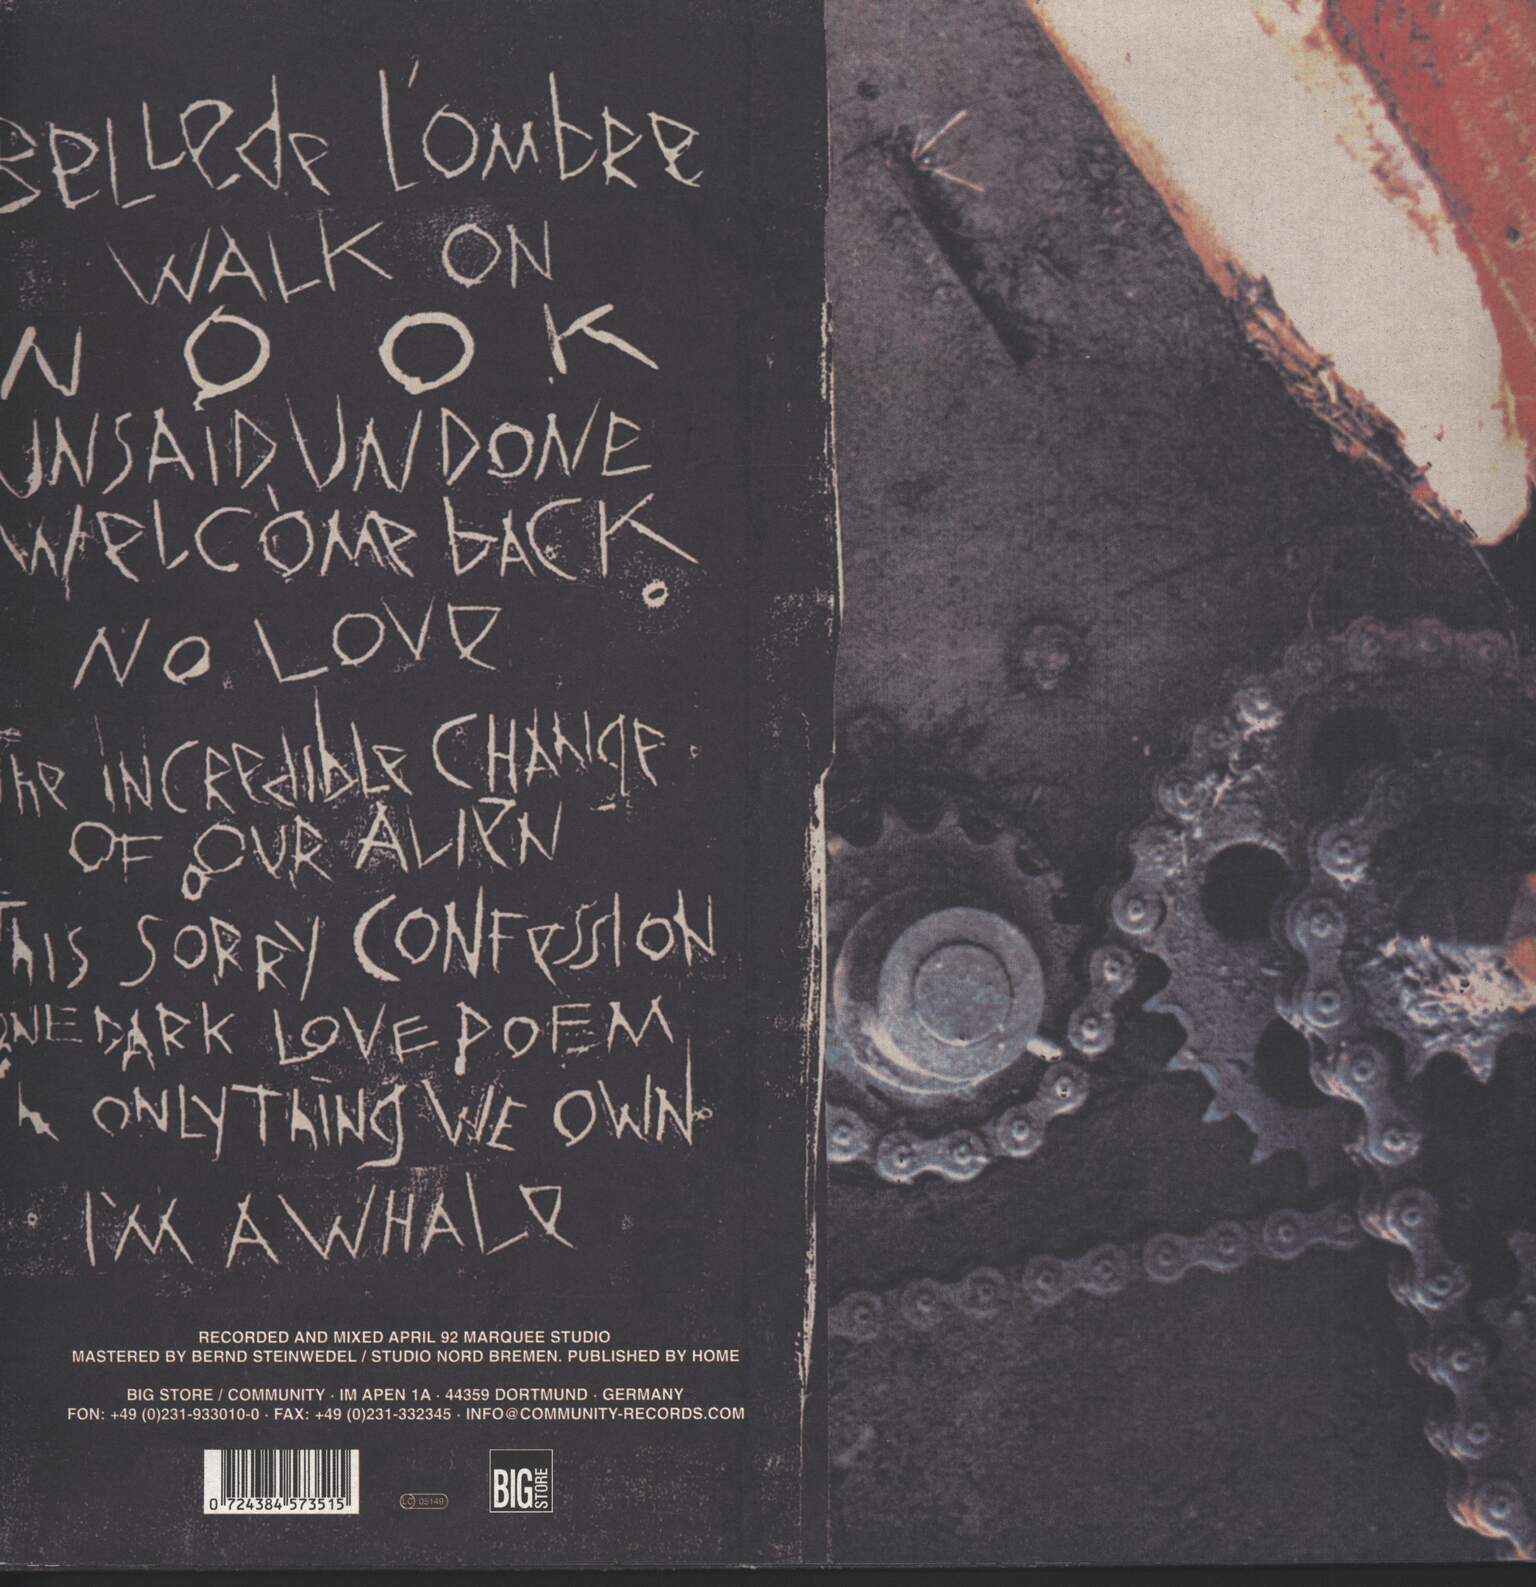 BELLE de L'OMBRE
WALK ON
NOOK
UNSAID UNDONE
WELCOME bACK
NO LOVE
The INCREdIbLE CHANGE
OF OUR ALIEN
THIS SORRY CONFESSION
ONE DARK LOVE POEM
ONLYTHING WE OWN
I'M A WHALE
RECORDED AND MIXED APRIL 92 MARQUEE STUDIO
MASTERED BY BERND STEINWEDEL / STUDIO NORD BREMEN. PUBLISHED BY HOME
BIG STORE / COMMUNITY · IM APEN 1A · 44359 DORTMUND · GERMANY
FON: +49 (0)231-933010-0 · FAX: +49 (0)231-332345 · INFO@COMMUNITY-RECORDS.COM
0 724384 573515
LC 05149
BIG STORE